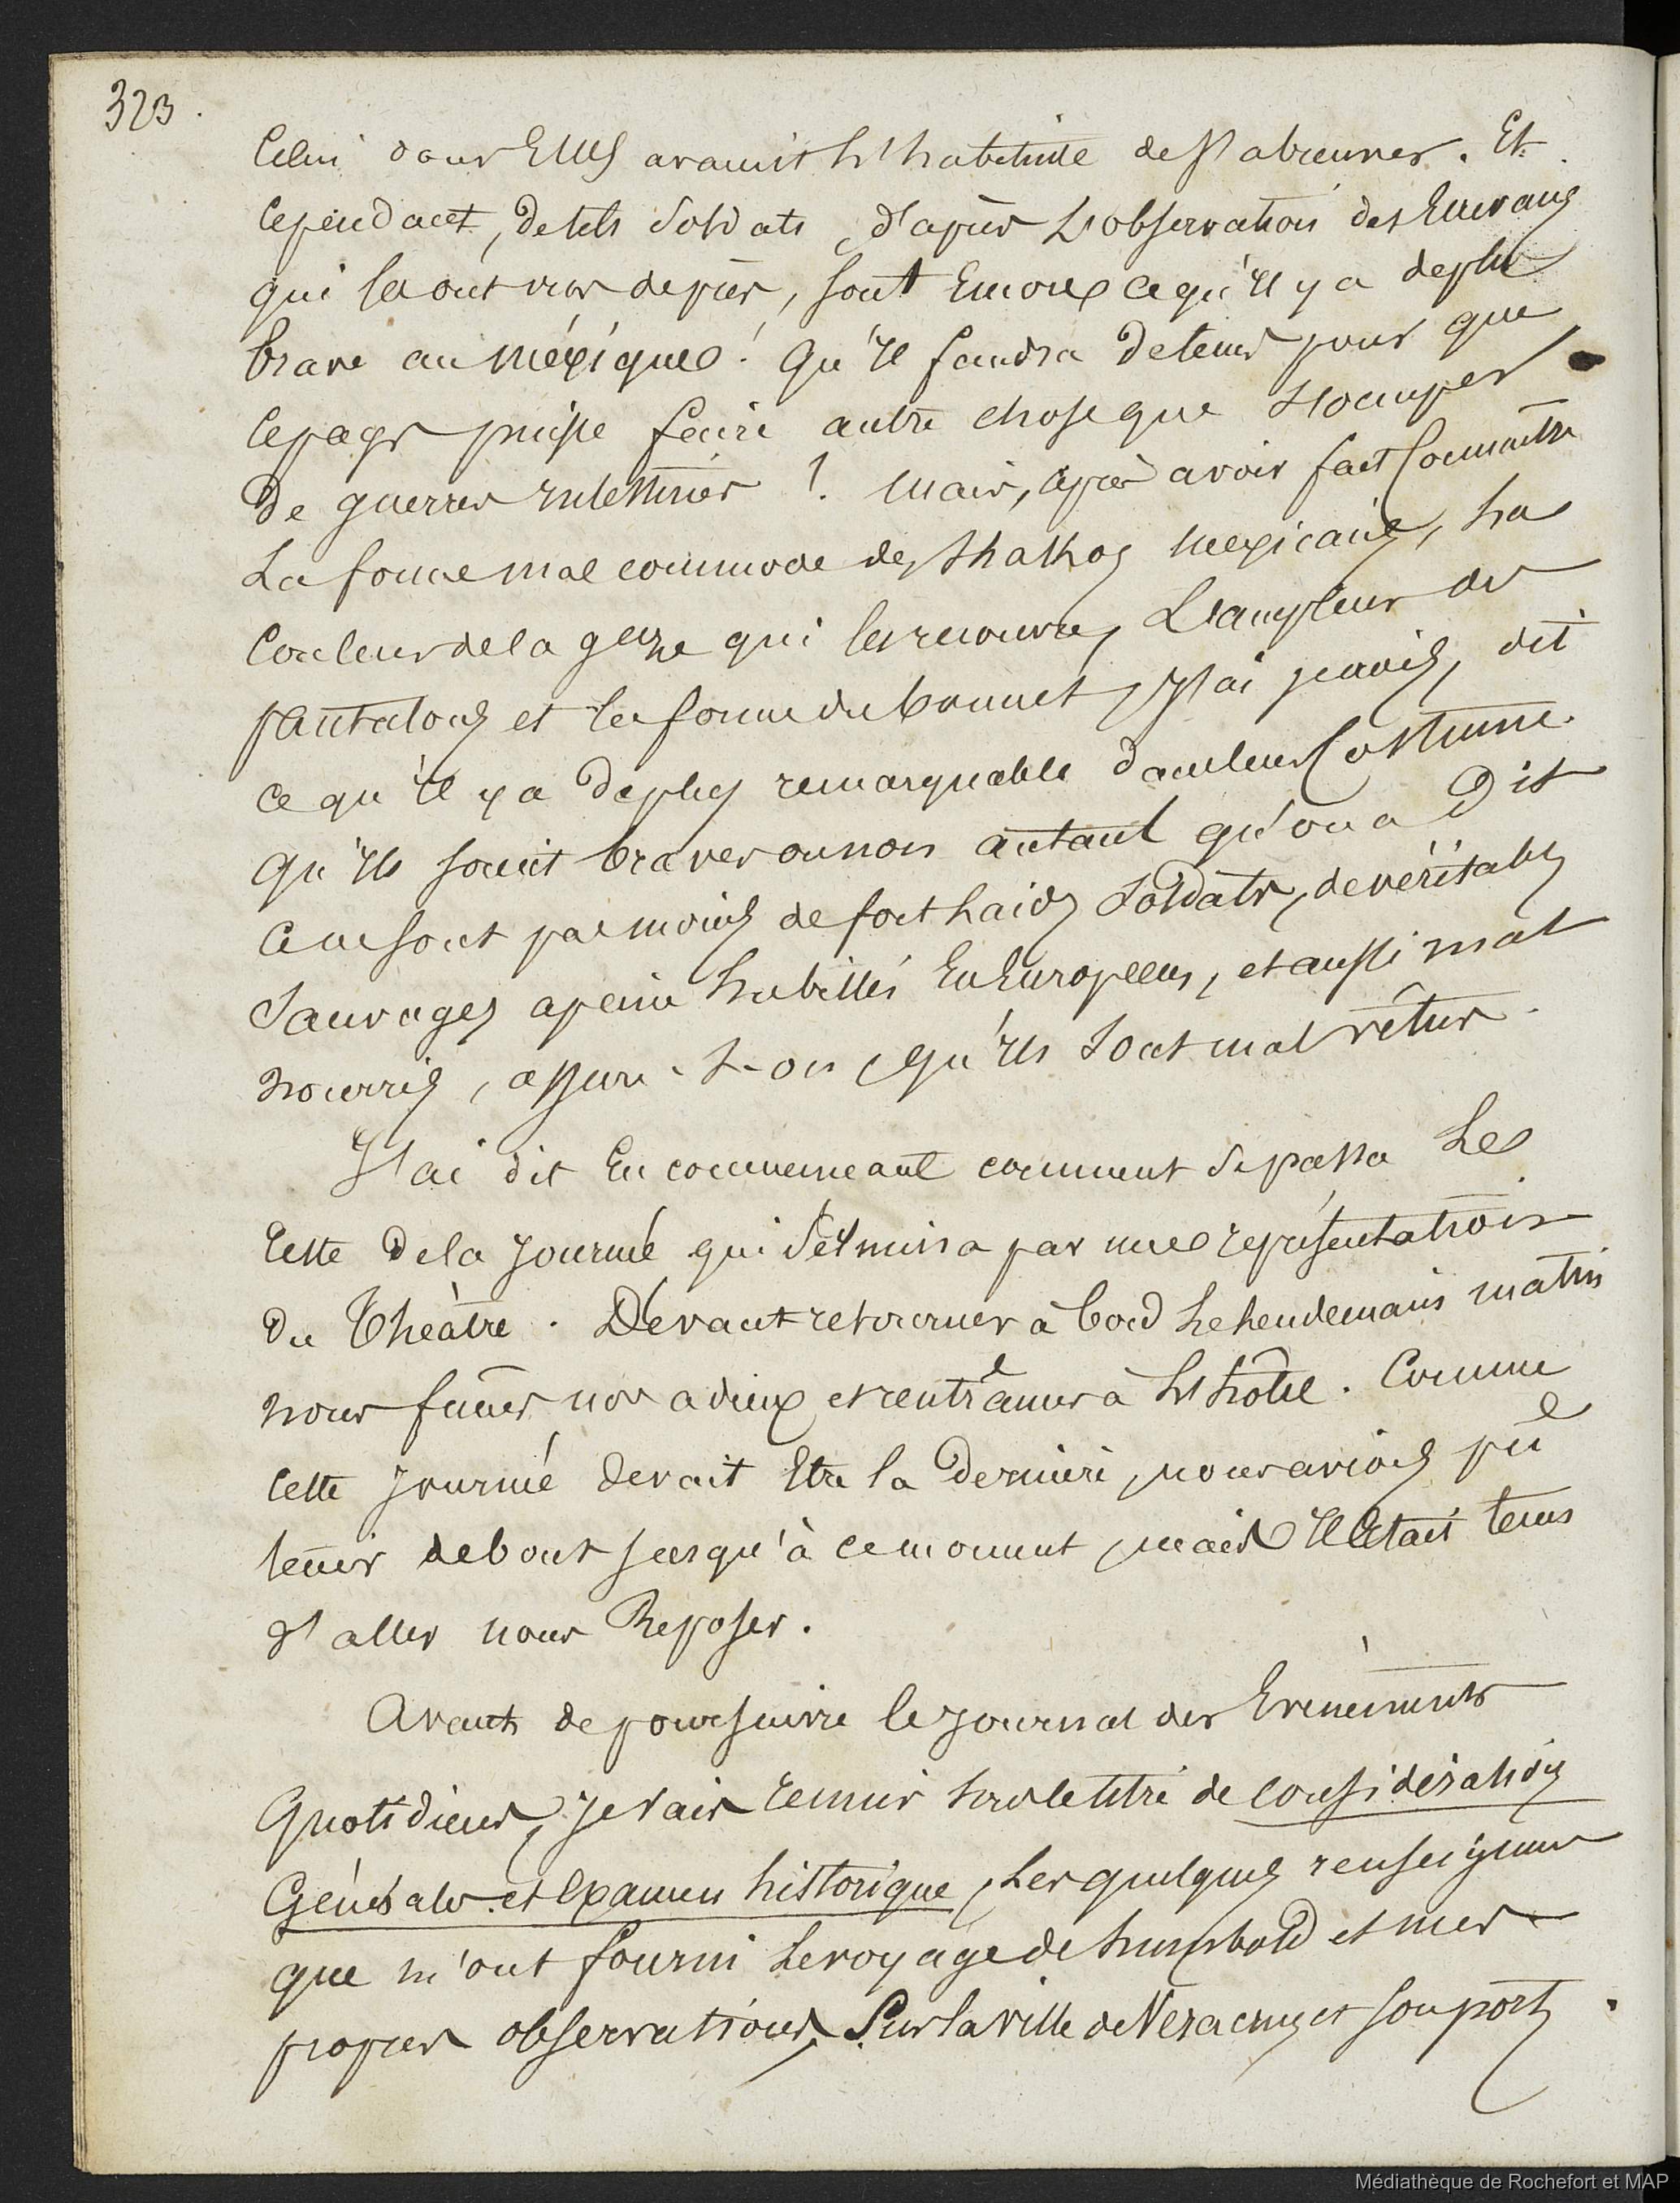 323.
Celui dont Elles avaient l'habitude de s'abreuver. Et
Cependant, de tels soldats, d'après l'observation des Ecrivains
qui les ont vus de près, sont Encore ce qu'il y a de plus
brave au méxique! Qu'il faudra de tems pour que
Ce pays puisse faire autre chose que s'occuper
De guerres intestines! mais, après avoir fait Connaître
La forme mal commode des shakos mexicains, La
Couleur de la gaze qui les recouvre, L'ampleur des
pantalons et la forme du bonnet, J'ai je crois, dit
ce qu'il y a de plus remarquable dans leur Costume.
Qu'ils soient braves ou non autant qu'on a Dit
Ce ne sont pas moins de fort laids Soldats, de véritables
Sauvages apeine habillés En Européens, et aussi mal
nourris, assure-t-on, qu'ils sont mal vêtus.
J'ai dit En commencant comment se passa Le
reste de la Journée qui se termina par une représentation
du Théàtre. Devant retourner à bord Le lendemain matin
nous fimes nos adieux et rentrâmes à L'hôtel. Comme
Cette Journée devait Etre la Dernière, nous avions pu
tenir debout jusqu'à ce moment, mais Il Etait tems
d'aller nous Reposer.
Avant de poursuivre le journal des Evènements
Quotidiens, Je vais réunir sous le titre de Considérations
Générales et Examen historique, Les quelques renseignemens
que m'ont fourni Le voyage de humbold et mes
propres observations Sur la ville de Veracruz et son port.
Médiathèque de Rochefort et MAP